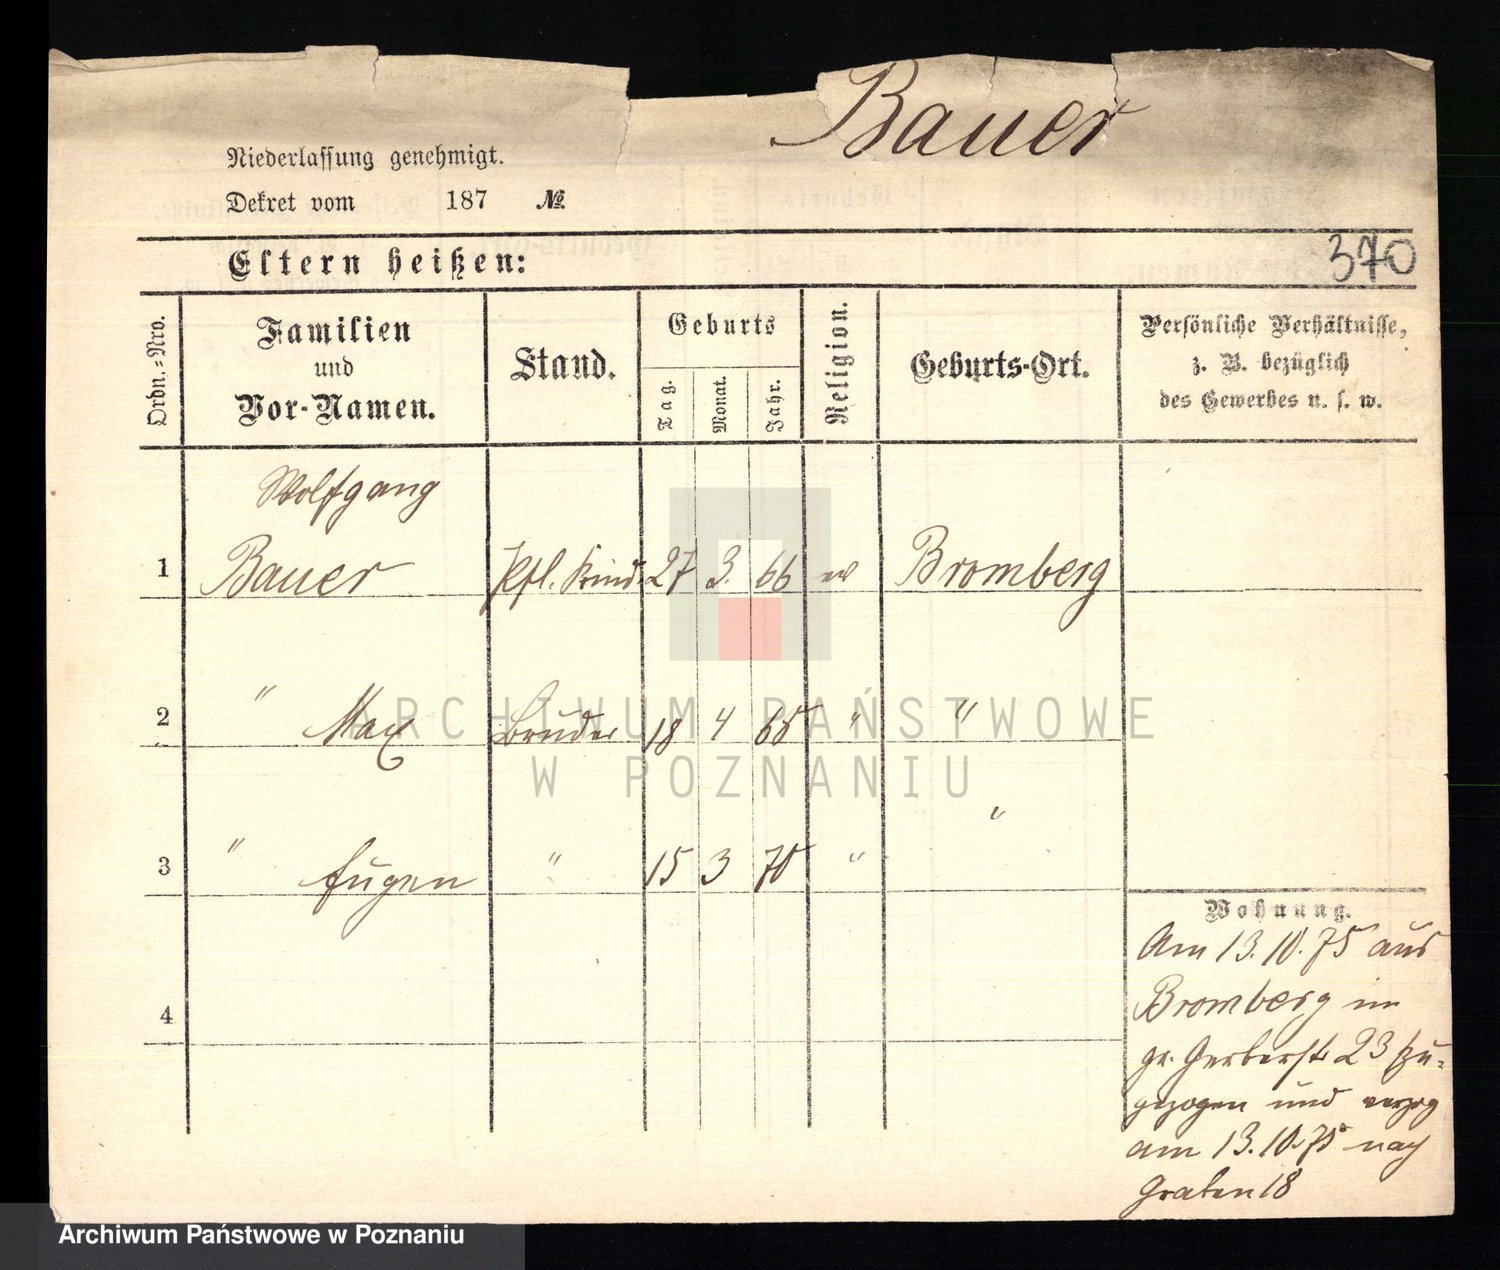 Bauer
Niederlassung genehmigt.
Dekret vom 187 №
Eltern heißen:
370
Ordn.-Nro.
Familien
und
Vor-Namen.
Stand.
Geburts
Tag.
Monat.
Jahr.
Religion.
Geburts-Ort.
Persönliche Verhältnisse,
z. B. bezüglich
des Gewerbes u. s. w.
Wolfgang
1 Bauer Pfl. Kind 27 3. 66 ev Bromberg
2 " Max Bruder 18 4 68 " "
3 " Eugen " 15 3 70 " "
4
Wohnung.
Am 13.10.75 aus
Bromberg in
gr. Gerberstr 23 zu-
gezogen und verzog
am 13.10.75 nach
Graben 18
ARCHIWUM PAŃSTWOWE
W POZNANIU
Archiwum Państwowe w Poznaniu